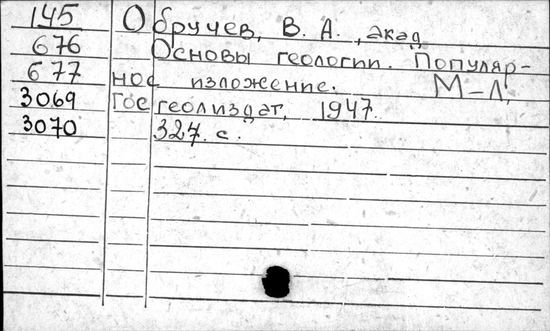 145 Обручев, В. А., акад.
676 Основы геологии. Популяр-
677 ное изложение. М-Л,
3069 Госгеолиздат, 1947.
3070 327. с.